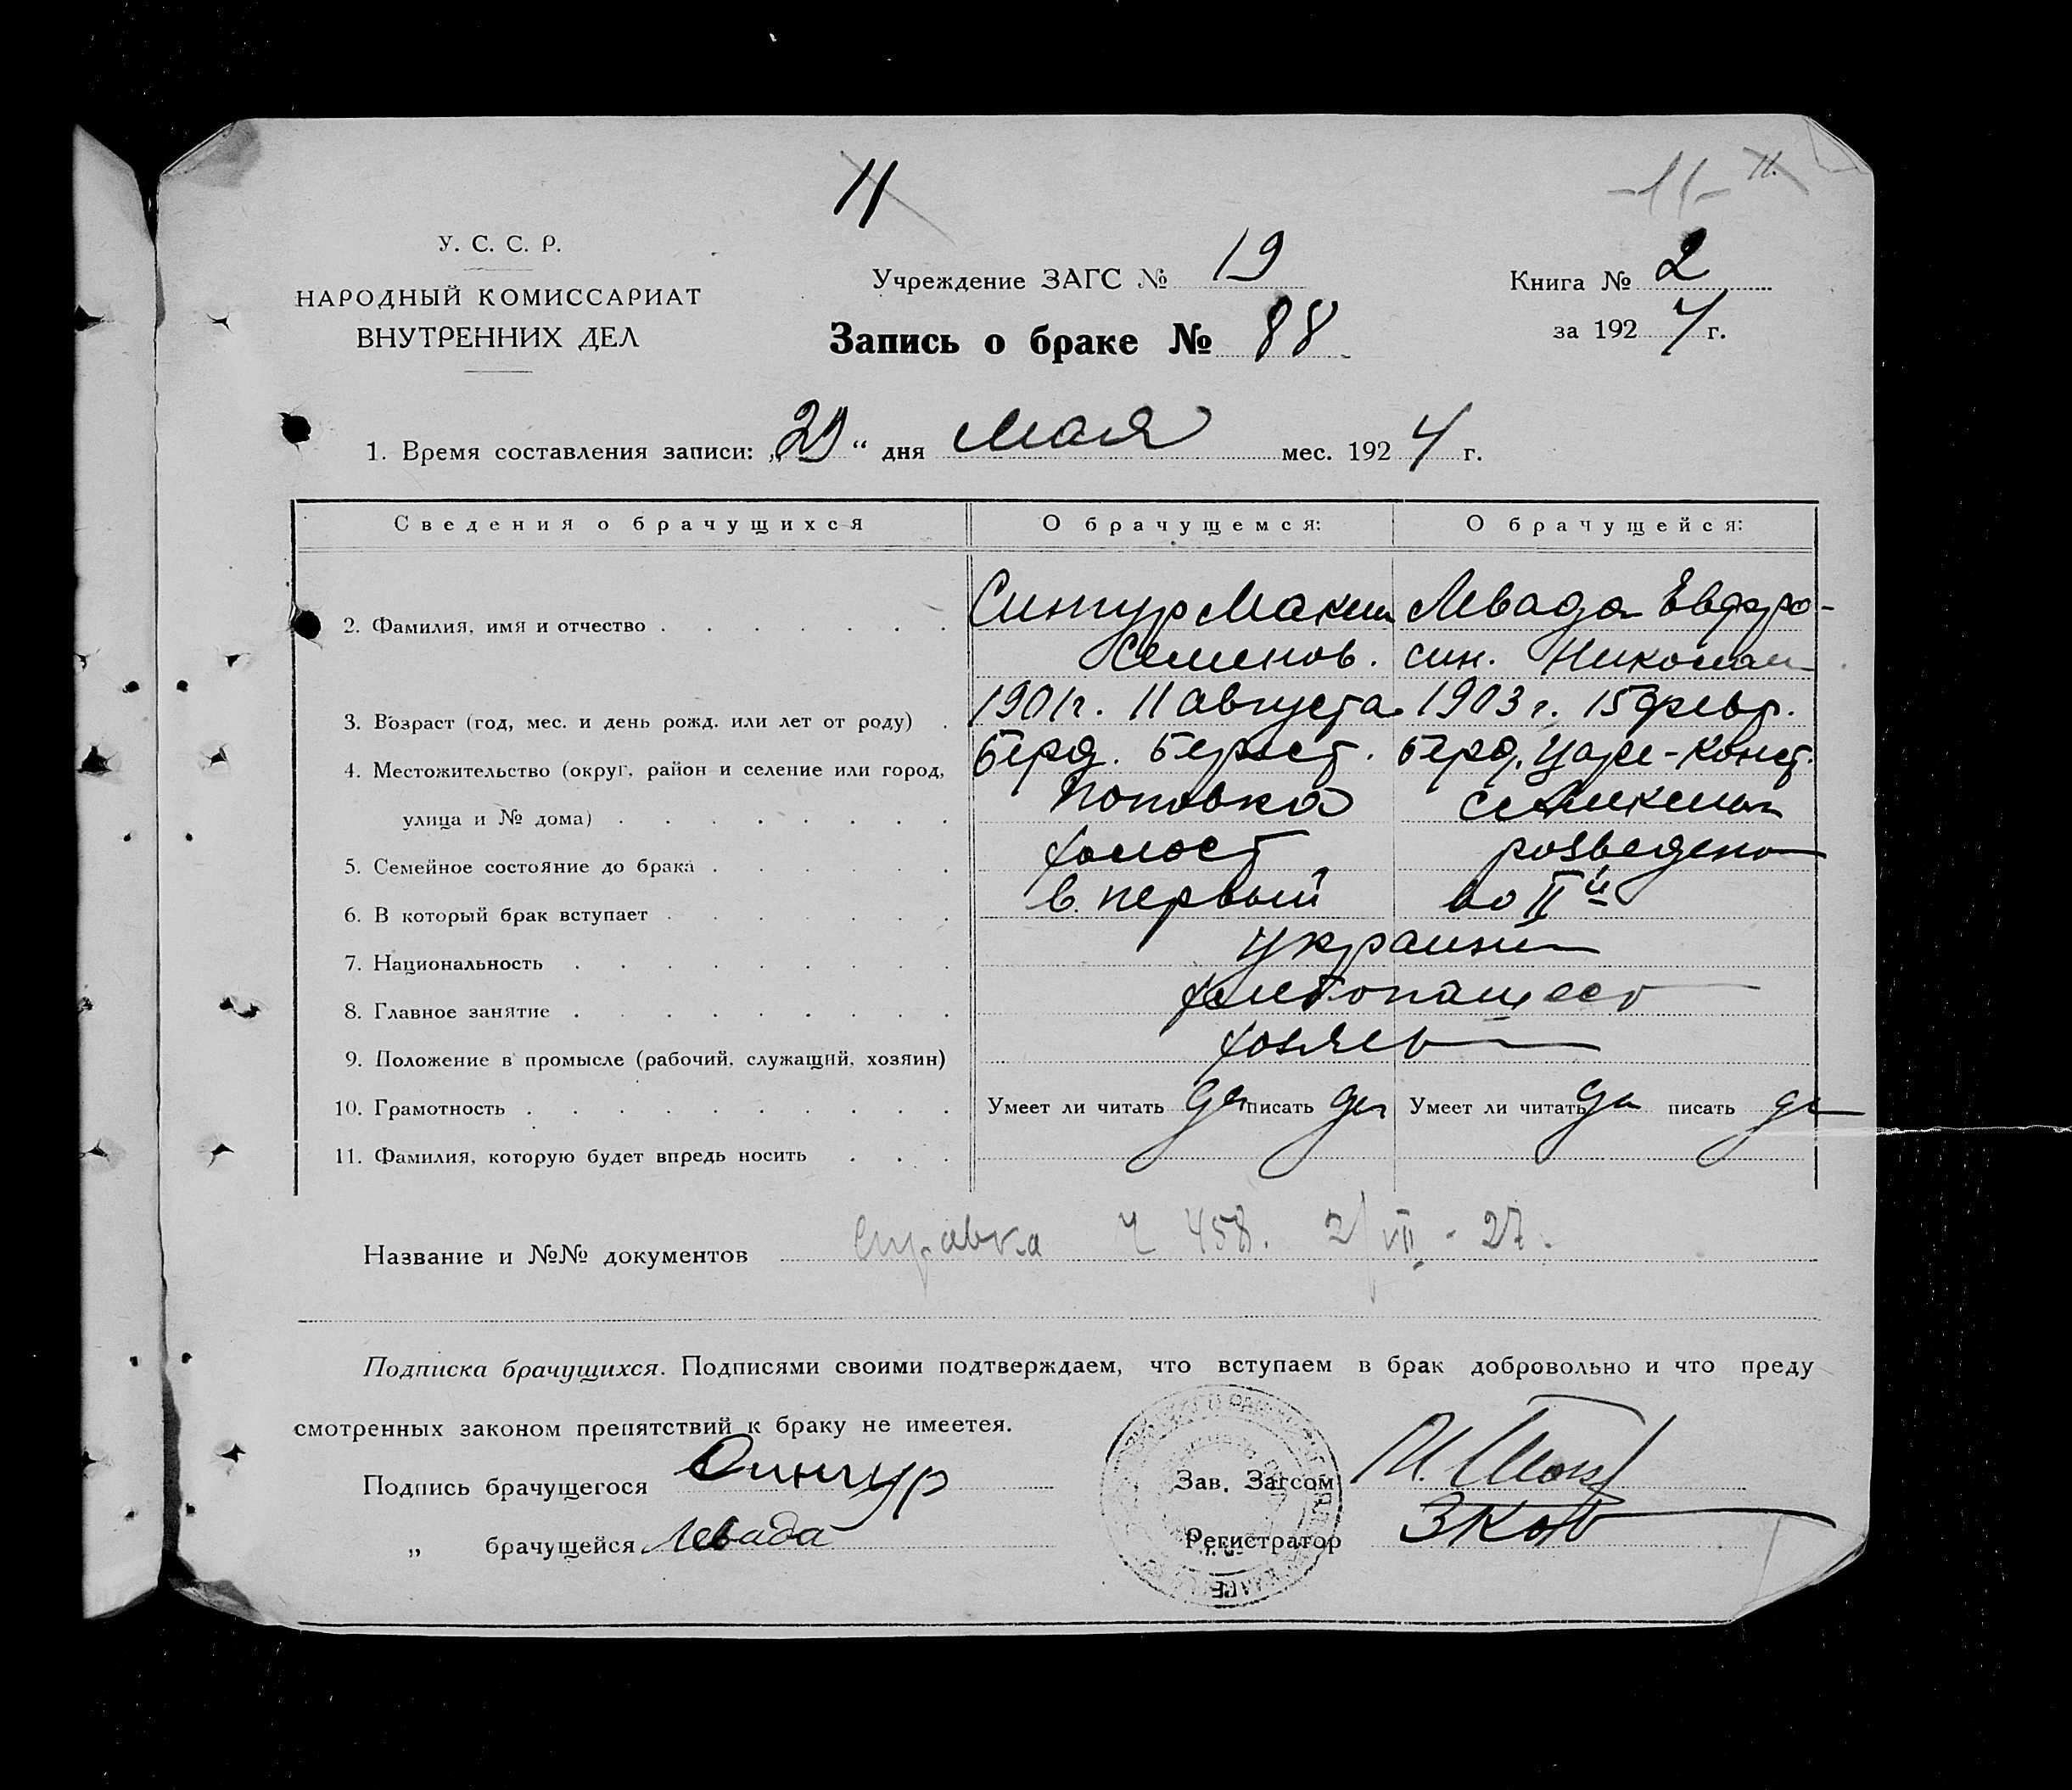 11
-11- 11.
У. С. С. Р.
НАРОДНЫЙ КОМИССАРИАТ
ВНУТРЕННИХ ДЕЛ
Учреждение ЗАГС № 19
Книга № 2
Запись о браке № 88
за 1924 г.
1. Время составления записи: „29“ дня Мая мес. 1924 г.
Сведения о брачущихся О брачущемся: О брачущейся:
2. Фамилия, имя и отчество Сингур Максим Левада Евфро-
Семенов. син. Николаи
3. Возраст (год, мес. и день рожд. или лет от роду) 1901 г. 11 августа 1903 г. 15 февр.
4. Местожительство (округ, район и селение или город, Берд. Берест. Берд. Царе-Конст.
улица и № дома) Поповка
5. Семейное состояние до брака холост розведена
6. В который брак вступает в первый во II й
7. Национальность украин
8. Главное занятие хлебопашест
9. Положение в промысле (рабочий, служащий, хозяин) хозяев
10. Грамотность Умеет ли читать да писать да Умеет ли читать да писать да
11. Фамилия, которую будет впредь носить
Название и №№ документов Справка Ч 458. 2/VII - 27.
Подписка брачущихся. Подписями своими подтверждаем, что вступаем в брак добровольно и что преду
смотренных законом препятствий к браку не имеетея.
Подпись брачущегося Сингур Зав. Загсом
„ брачущейся Левада Регистратор